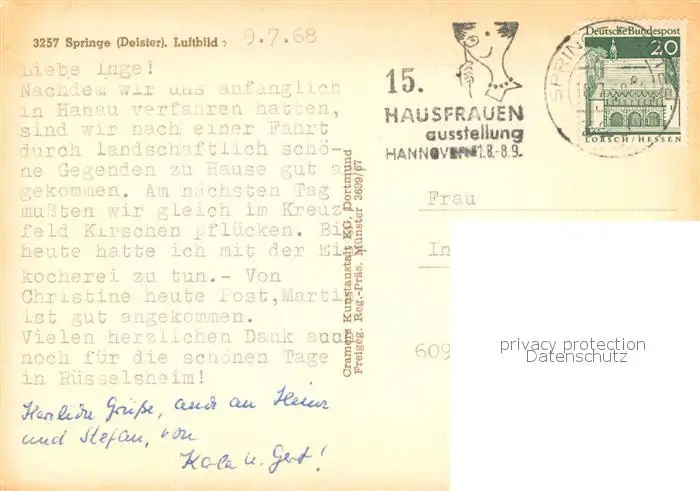 3257 Springe (Deister). Luftbild
9.7.68
Liebe Inge!
Nachdem wir uns anfänglich
in Hanau verfahren hatten,
sind wir nach einer Fahrt
durch landschaftlich schö-
ne Gegenden zu Hause gut a
gekommen. Am nächsten Tag
mußten wir gleich im Kreuz
feld Kirschen pflücken. Bi
heute hatte ich mit der Ei
kocherei zu tun.- Von
Christine heute Post, Marti
ist gut angekommen.
Vielen herzlichen Dank auc
noch für die schönen Tage
in Rüsselsheim!
Herzliche Grüße, auch an
und Stefan, von
Karla u. Gert!
Cramers Kunstanstalt KG, Dortmund
Freigeg. Reg.-Präs. Münster 3699/67
15.
HAUSFRAUEN
ausstellung
HANNOVER 1.8.-8.9.
SPRIN
Deutsche Bundespost
20
LORSCH/HESSEN
Frau
In
609
privacy protection
Datenschutz